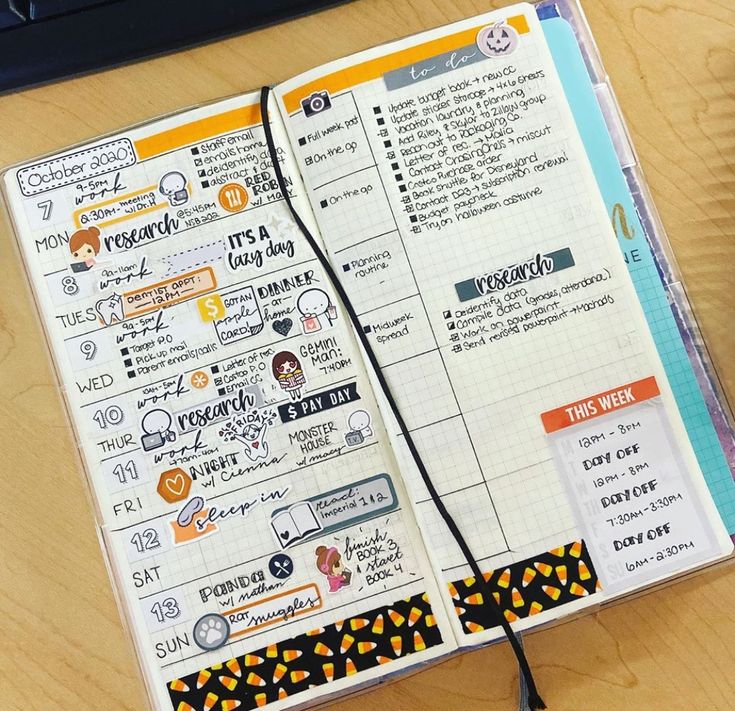 October 2020
staff email
emails home
deidentify data
abstract + draft
7
MON
9-5pm
work
2:30PM- meeting
w/ Dr. H
RED
ROBIN
research
@5:45PM
IT'S A
lazy day
8
TUES
9a-11am
work
DENTIST APPT:
12PM
GOT AN
apple
CARD!
DINNER
-at-
home
9
WED
9a-5pm
work
Target P.O
Pick up mail
Parent emails/calls
Letter of rec
Costco P.O
Email CC
GEMINI
MAN:
7:40PM
10
THUR
10am-5pm
work
research
$ PAY DAY
11
FRI
work
FRIDAY
NIGHT
w/ Cienna
MONSTER
HOUSE
w/ macy
T.V.
12
SAT
sleep in
read:
Imperial 1 & 2
finish
BOOK 3
start
BOOK 4
13
SUN
PANDA
w/ nathan
RAT snuggles
Full week post
On the go
On the go
Planning
routine
Midweek
spread
to do
Update budget book → new CC
Update sticker storage → 4x6 sheets
Vacation laundry & planning
Add Riley & Skylar to Zillow group
Reach out to Packaging Co.
Letter of rec → Walla
Contact CrossingPlans → miscut
Costco Purchase order
Book shuttle for Disneyland
Contact DCS → subscription renewal
Budget paycheck
Try on halloween costume
research
deidentify data
Compile data (grades, attendance)
Work on powerpoint
Send revised powerpoint →
THIS WEEK
12PM - 8PM
DAY OFF
12PM - 8PM
DAY OFF
7:30AM-3:30PM
DAY OFF
6AM - 2:30PM